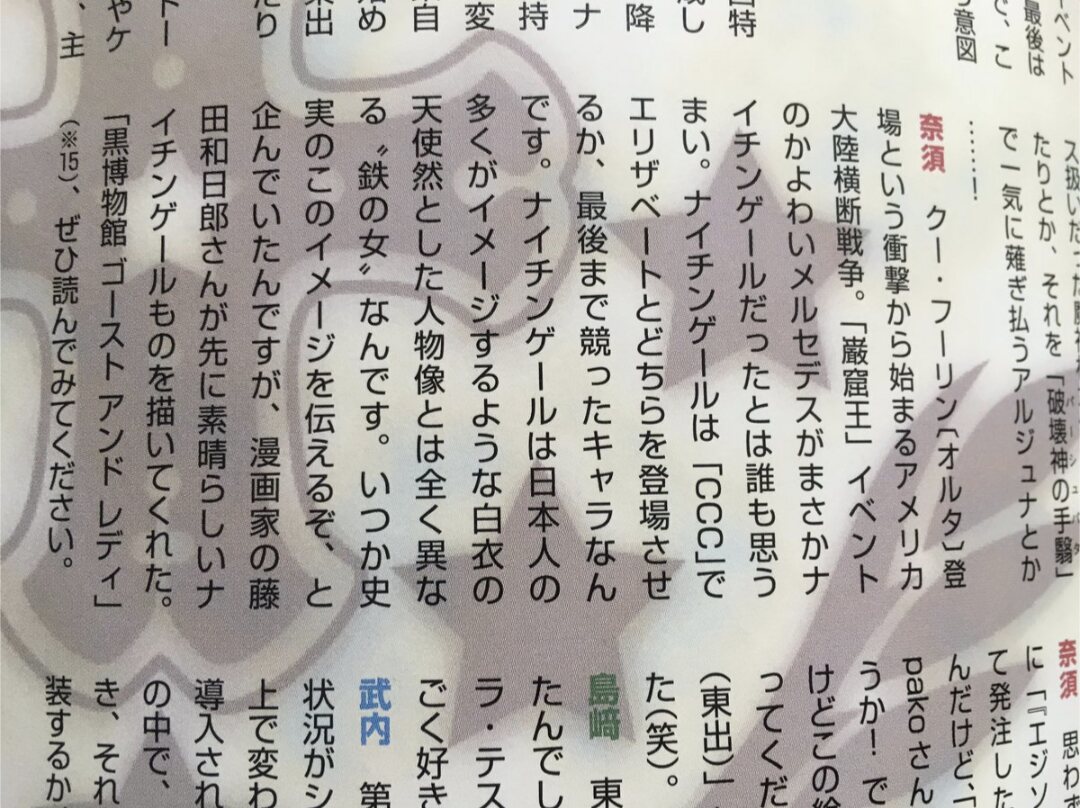 ーベント
最後は
で、こ
う意図
特
残し
降
ナ
持
変
自
始め
東出
たり
トー
やケ
、主
ス扱いだった
たりとか、それを「破壊神の手翳」
で一気に薙ぎ払うアルジュナとか
……！
奈須　クー・フーリン〔オルタ〕登
場という衝撃から始まるアメリカ
大陸横断戦争。「巌窟王」イベント
のかよわいメルセデスがまさかナ
イチンゲールだったとは誰も思う
まい。ナイチンゲールは「CCC」で
エリザベートとどちらを登場させ
るか、最後まで競ったキャラなん
です。ナイチンゲールは日本人の
多くがイメージするような白衣の
天使然とした人物像とは全く異な
る〝鉄の女〟なんです。いつか史
実のこのイメージを伝えるぞ、と
企んでいたんですが、漫画家の藤
田和日郎さんが先に素晴らしいナ
イチンゲールものを描いてくれた。
「黒博物館 ゴースト アンド レディ」
（※15）、ぜひ読んでみてください。
奈須　思わず
に『エジソ
て発注した
んだけど、
pakoさん
うか！　で
けどこの絵
ってくだ
（東出）」
た（笑）。
島﨑　東
たんでし
ラ・テス
ごく好き
武内　第
状況がシ
上で変わ
導入され
の中で、
き、それ
装するか